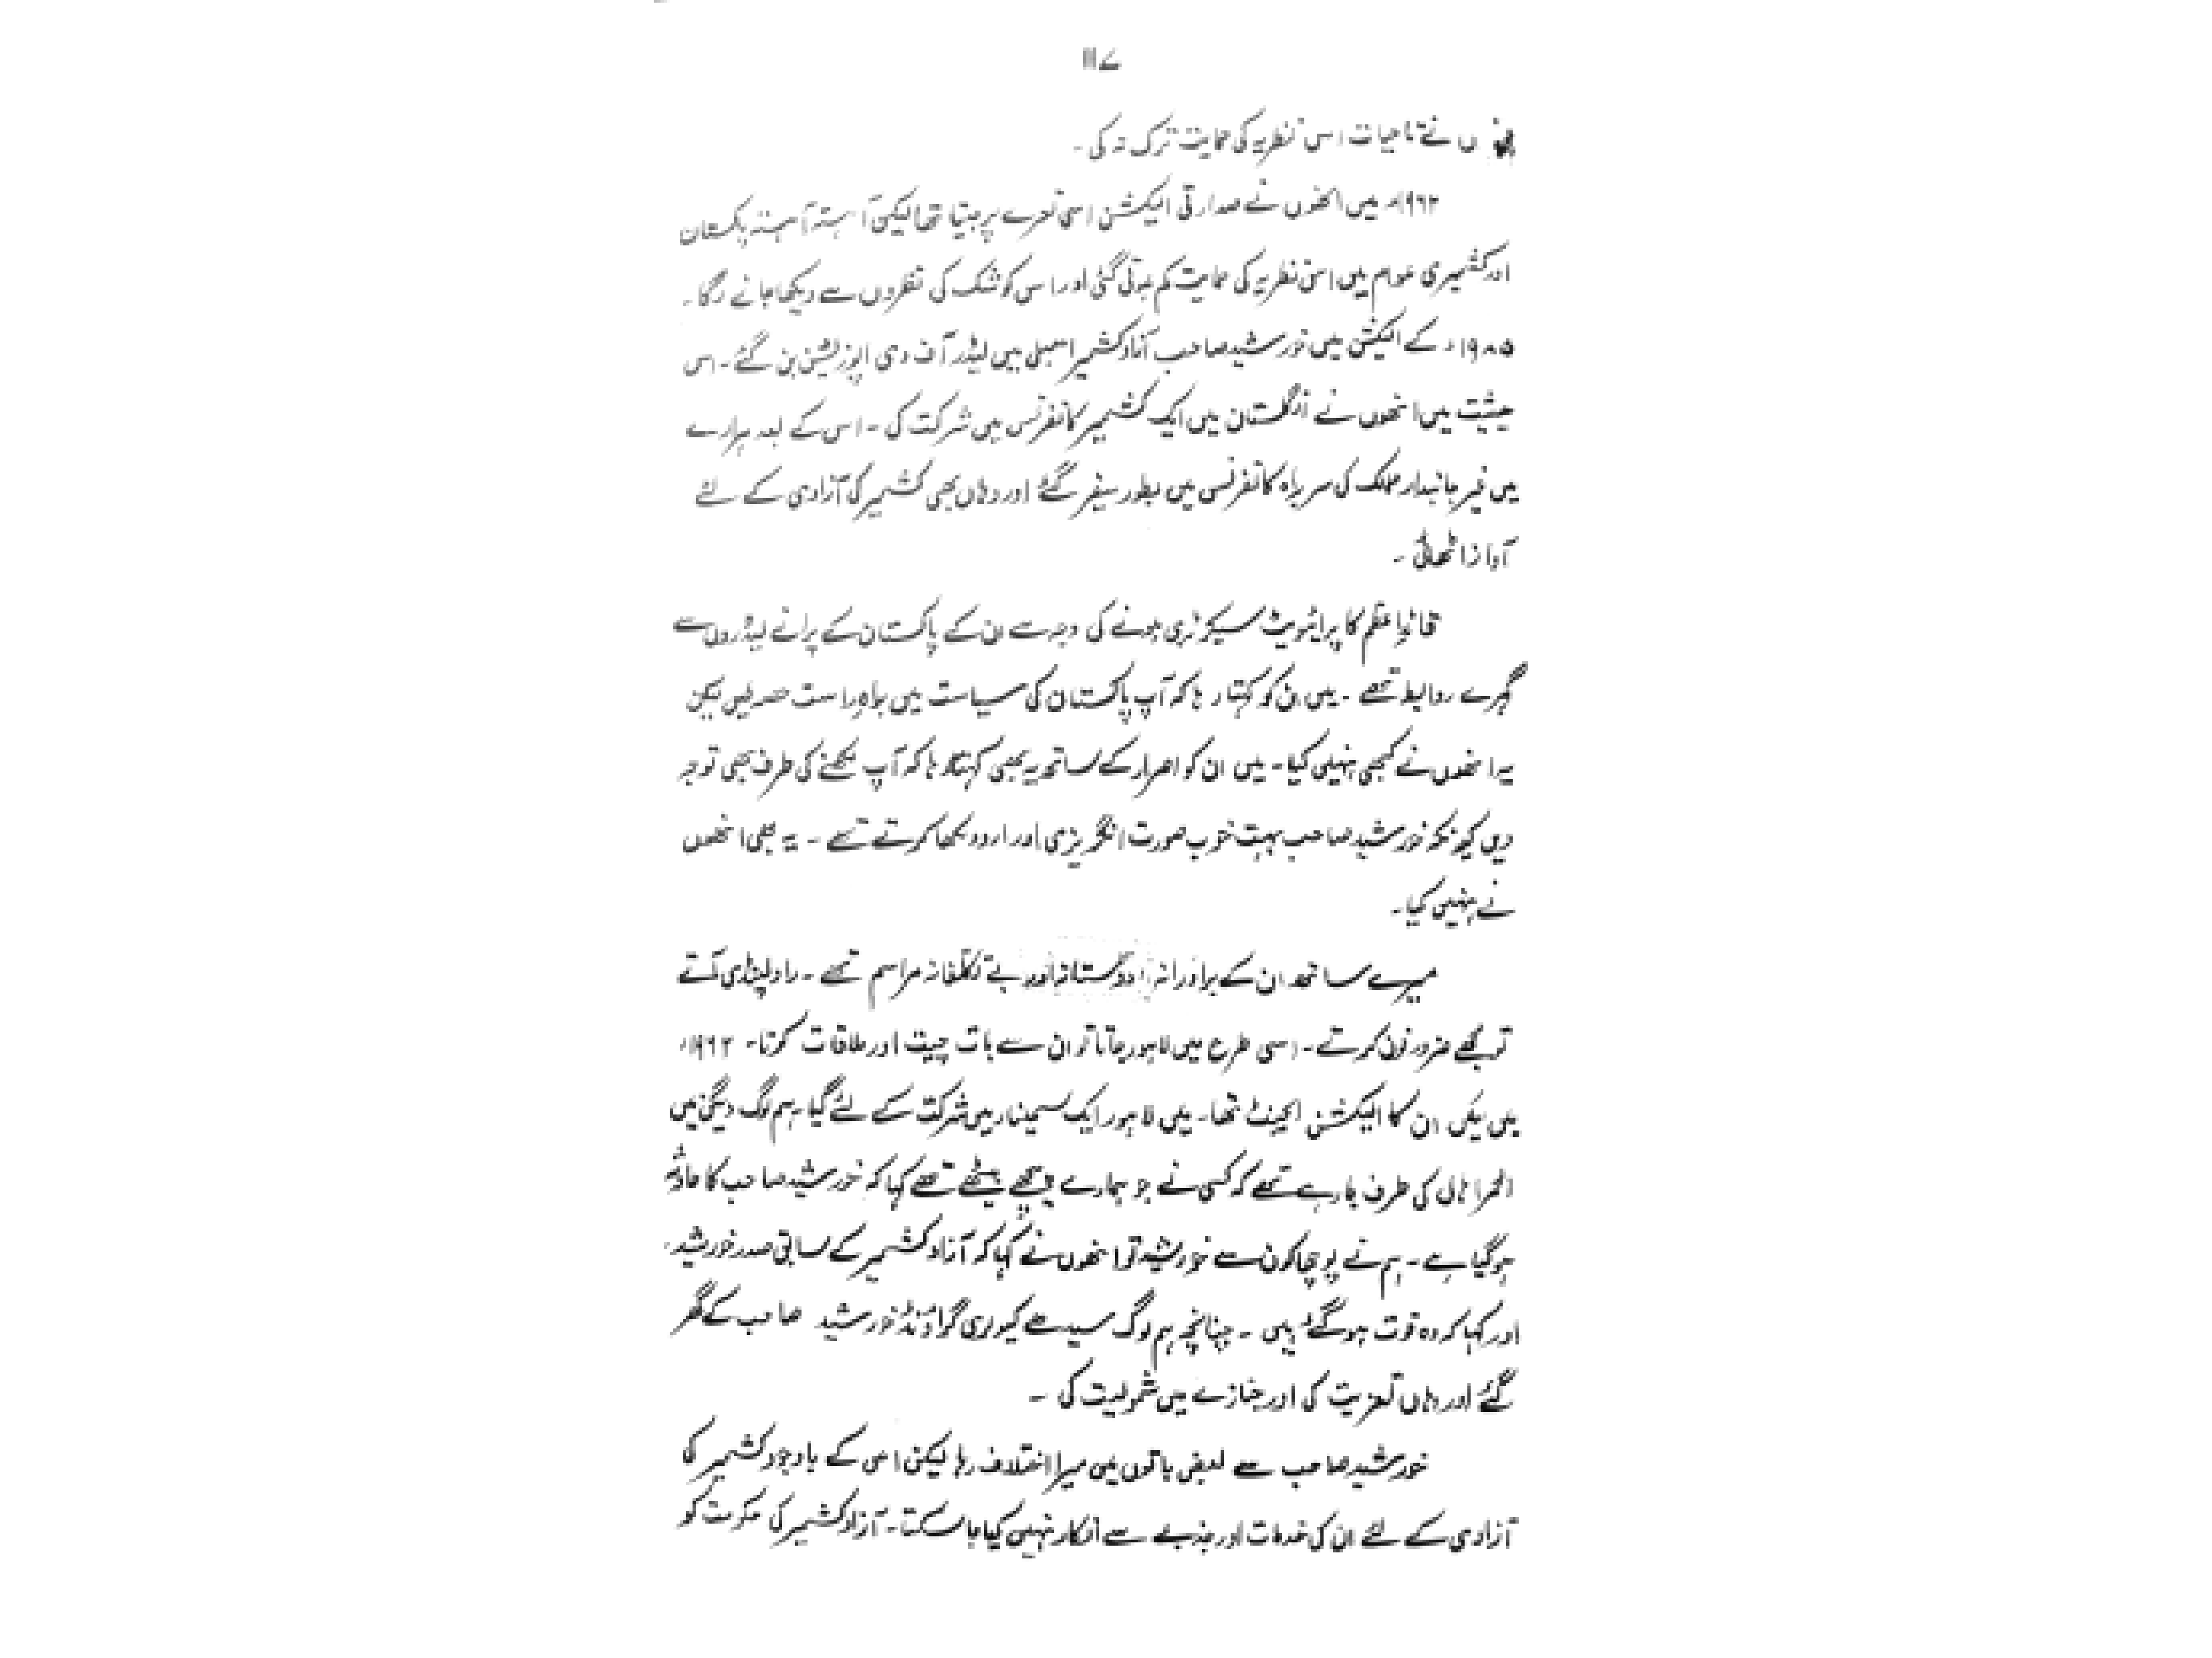 ۱۱۷
انھوں نے تاحیات اس نظریہ کی حمایت ترک نہ کی ۔
۱۹۶۲ء میں انھوں نے صدارتی الیکشن اسی نعرے پر جیتا تھا لیکن آہستہ آہستہ پاکستان
اور کشمیری عوام میں اس نظریہ کی حمایت کم ہوتی گئی اور اس کو شک کی نظروں سے دیکھا جانے لگا ۔
۱۹۸۵ء کے الیکشن میں خورشید صاحب آزاد کشمیر اسمبلی میں لیڈر آف دی اپوزیشن بن گئے ۔ اس
حیثیت میں انھوں نے انگلستان میں ایک کشمیر کانفرنس میں شرکت کی ۔ اس کے بعد ہرارے
میں غیر جانبدار ممالک کی سربراہ کانفرنس میں بطور سفیر گئے اور وہاں بھی کشمیر کی آزادی کے لئے
آواز اٹھائی ۔
قائد اعظم کا پرائیویٹ سیکرٹری ہونے کی وجہ سے ان کے پاکستان کے پرانے لیڈروں سے
گہرے روابط تھے ۔ میں ان کو کہتا رہا کہ آپ پاکستان کی سیاست میں براہ راست حصہ لیں لیکن
یہ انھوں نے کبھی نہیں کیا ۔ میں ان کو اصرار کے ساتھ یہ بھی کہتا رہا کہ آپ لکھنے کی طرف بھی توجہ
دیں کیونکہ خورشید صاحب بہت خوب صورت انگریزی اور اردو لکھا کرتے تھے ۔ یہ بھی انھوں
نے نہیں کیا ۔
میرے ساتھ ان کے برادرانہ، دوستانہ اور بے تکلفانہ مراسم تھے ۔ راولپنڈی آتے
تو مجھے ضرور فون کرتے ۔ اسی طرح میں لاہور جاتا تو ان سے بات چیت اور ملاقات کرتا ۔ ۱۹۶۲ء
میں میں ان کا الیکشن ایجنٹ تھا ۔ میں لاہور ایک سیمینار میں شرکت کے لئے گیا ۔ ہم لوگ ویگن میں
الحمرا ہال کی طرف جا رہے تھے کہ کسی نے جو ہمارے پیچھے بیٹھے تھے کہا کہ خورشید صاحب کا حادثہ
ہو گیا ہے ۔ ہم نے پوچھا کون سے خورشید تو انھوں نے کہا کہ آزاد کشمیر کے سابق صدر خورشید ۔
اور کہا کہ وہ فوت ہو گئے ہیں ۔ چنانچہ ہم لوگ سیدھے کیولری گراؤنڈ خورشید صاحب کے گھر
گئے اور وہاں تعزیت کی اور جنازے میں شمولیت کی ۔
خورشید صاحب سے بعض باتوں میں میرا اختلاف رہا لیکن اس کے باوجود کشمیر کی
آزادی کے لئے ان کی خدمات اور جذبے سے انکار نہیں کیا جا سکتا ۔ آزاد کشمیر کی حکومت کو